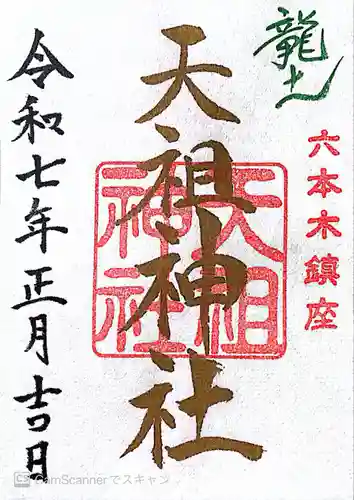 龍土
六本木鎮座
天祖神社
天祖
神社
令和七年正月吉日
CS CamScannerでスキャン